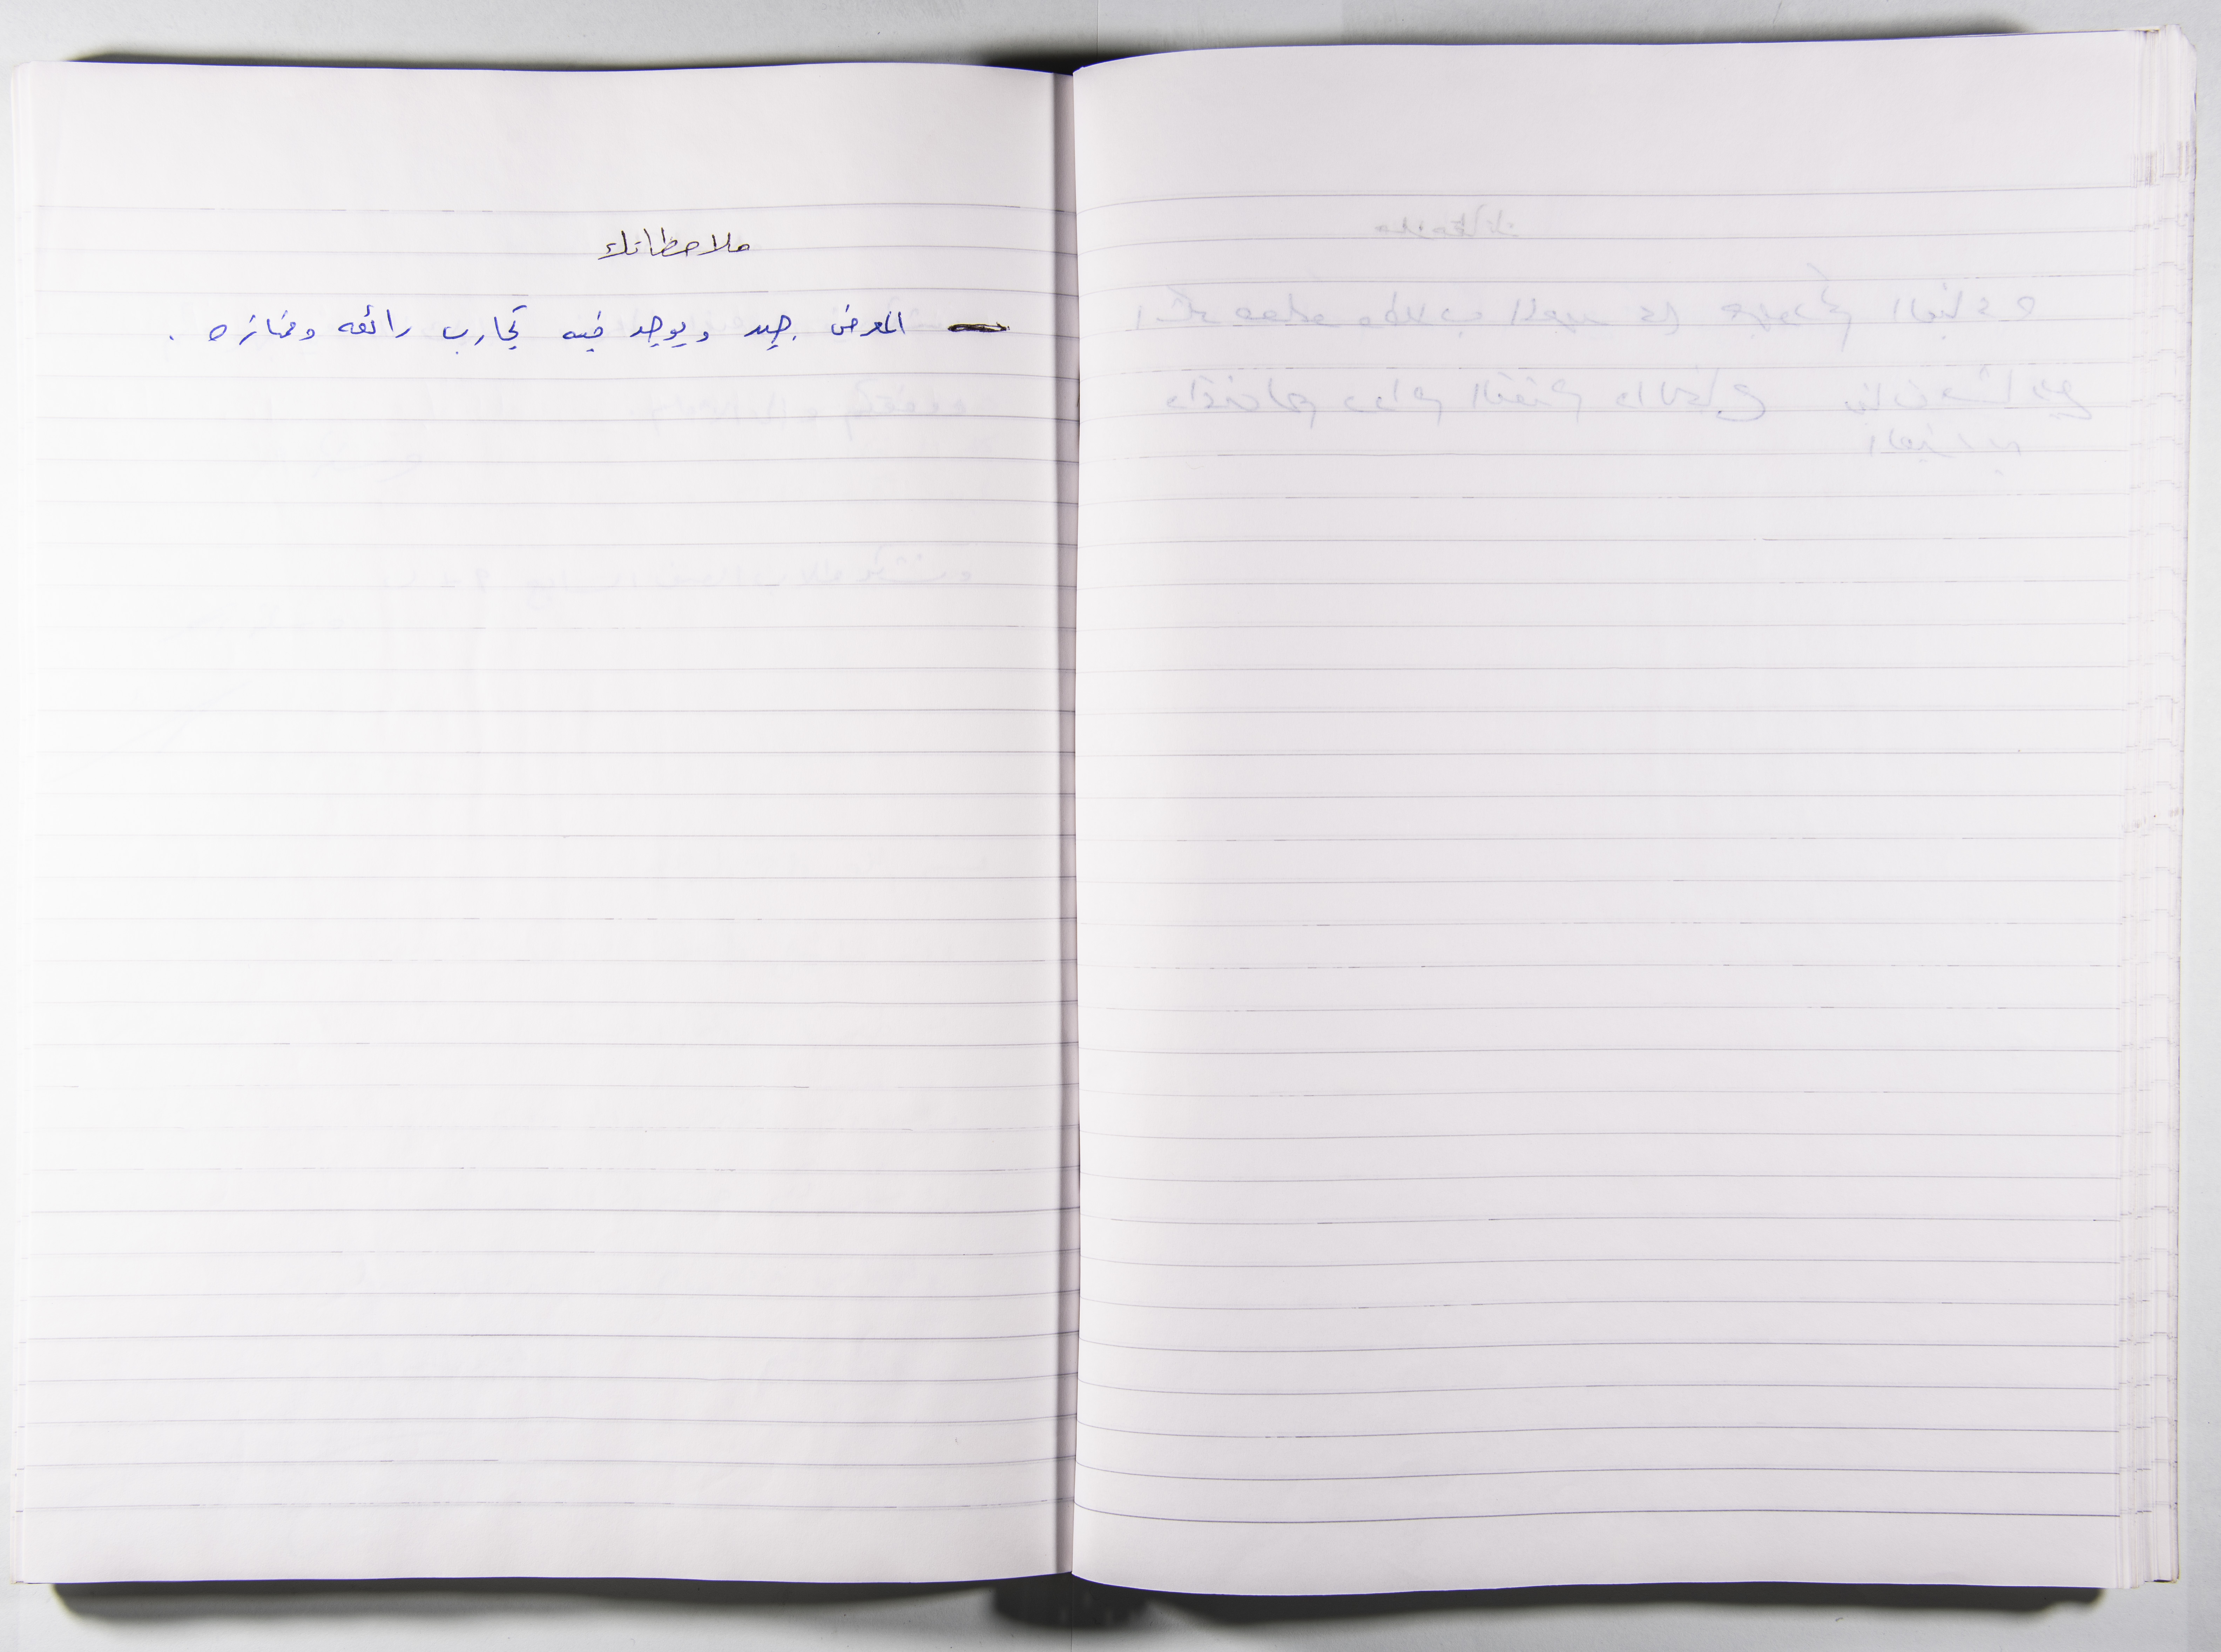 ملاحظاتك
- المعرض جيد ويوجد فيه تجارب رائعه وممتازه .